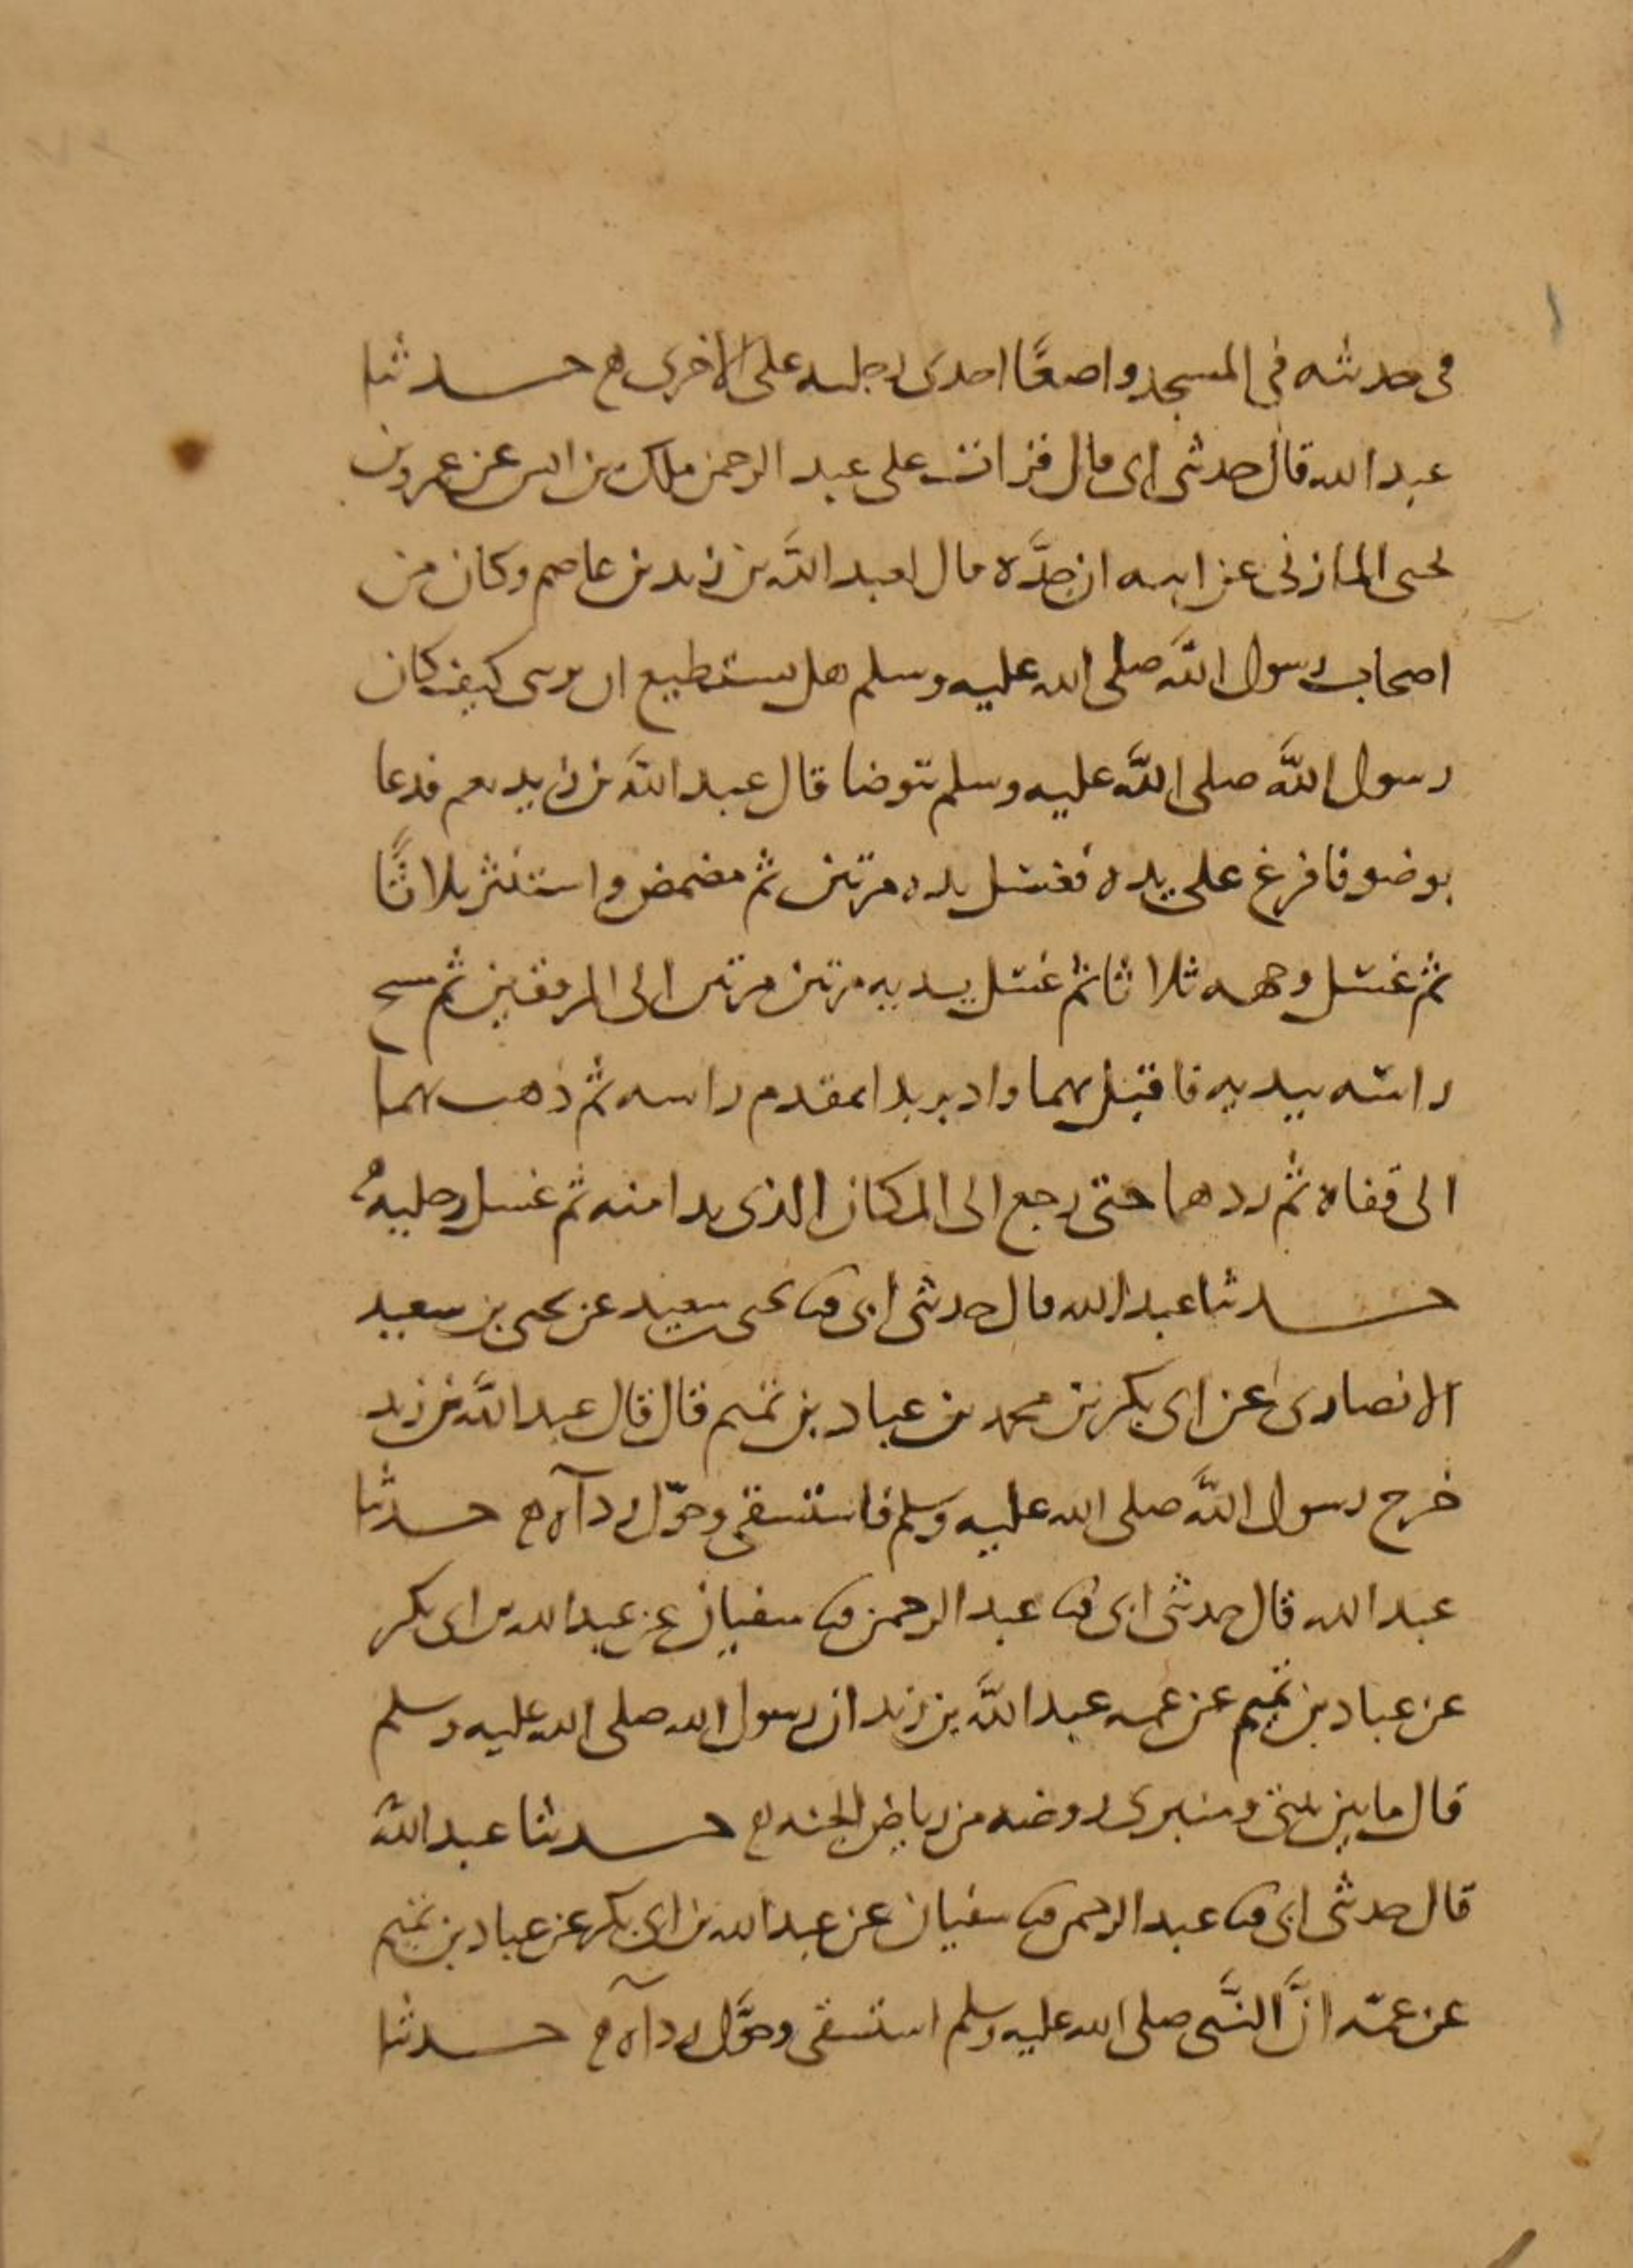 في حديثه في المسجد واضعًا احدى رجليه على الاخرى حدثنا
عبد الله قال حدثني ابي قال قرات على عبد الرحمن ملك بن انس عن عمرو بن
يحيى المازني عن ابيه ان جدَّه قال لعبد الله بن زيد بن عاصم وكان من
اصحاب رسول الله صلى الله عليه وسلم هل يستطيع ان يريني كيف كان
رسول الله صلى الله عليه وسلم يتوضا قال عبد الله بن زيد نعم فدعا
بوضو فافرغ على يده فغسل يده مرتين ثم مضمض واستنثر ثلاثًا
ثم غسل وجهه ثلاثا ثم غسل يديه مرتين مرتين الى المرفقين ثم مسح
راسه بيديه فاقبل بهما وادبر بدا بمقدم راسه ثم ذهب بهما
الى قفاه ثم ردهما حتى رجع الى المكان الذي بدا منه ثم غسل رجليه
حدثنا عبد الله قال حدثني ابي ثنا يحيى بن سعيد عن يحيى بن سعيد
الانصاري عن ابي بكر بن محمد عن عباد بن تميم قال قال عبد الله بن زيد
خرج رسول الله صلى الله عليه وسلم فاستسقى وحوّل رداءه حدثنا
عبد الله قال حدثني ابي ثنا عبد الرحمن ثنا سفيان عن عبد الله بن ابي بكر
عن عباد بن تميم عن عمه عبد الله بن زيد ان رسول الله صلى الله عليه وسلم
قال ما بين بيتي ومنبري روضه من رياض الجنه حدثنا عبد الله
قال حدثني ابي ثنا عبد الرحمن ثنا سفيان عن عبد الله بن ابي بكر عن عباد بن تميم
عن عمّه انَّ النَّبي صلى الله عليه وسلم استسقى وحوَّل رداءه حدثنا